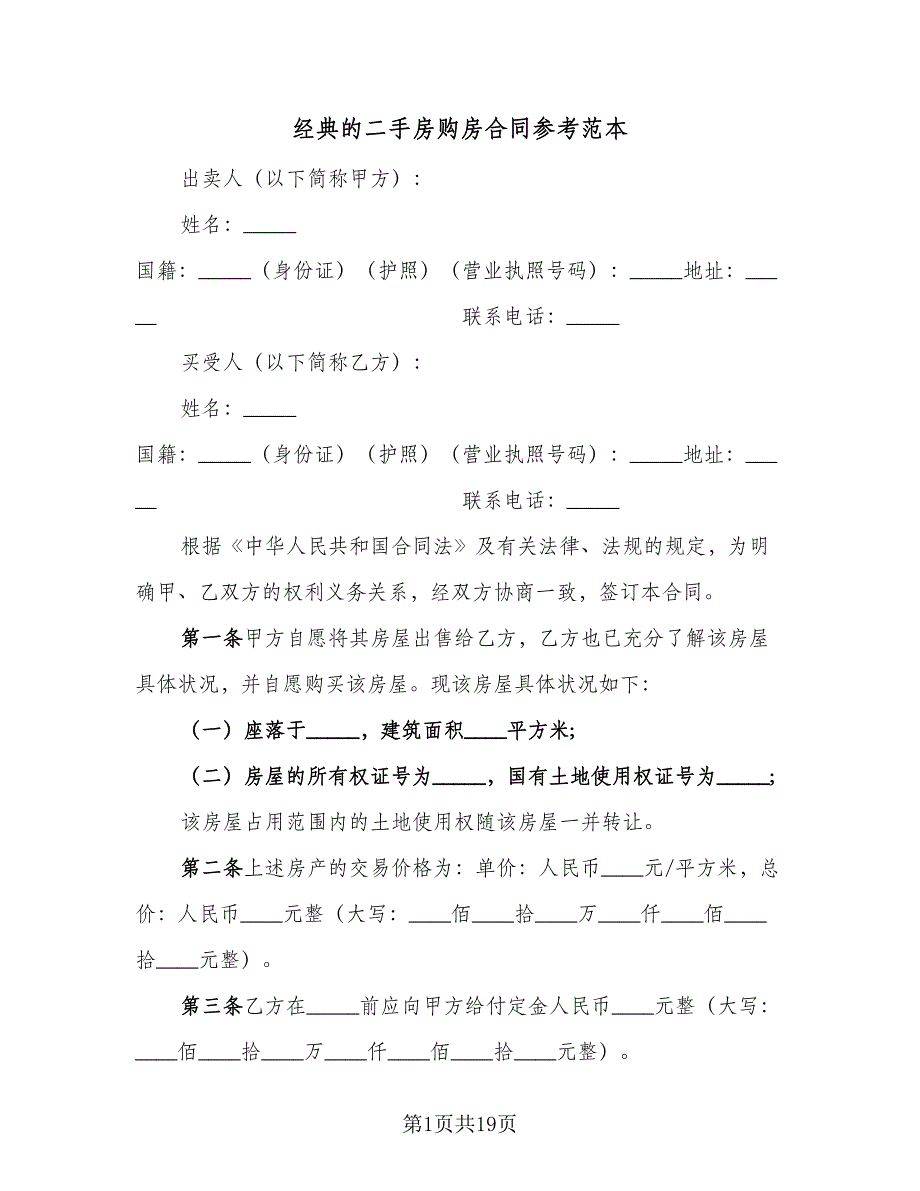 经典的二手房购房合同参考范本
出卖人（以下简称甲方）：
姓名：_____
国籍：_____（身份证）（护照）（营业执照号码）：_____地址：___
__ 联系电话：_____
买受人（以下简称乙方）：
姓名：_____
国籍：_____（身份证）（护照）（营业执照号码）：_____地址：___
__ 联系电话：_____
根据《中华人民共和国合同法》及有关法律、法规的规定，为明
确甲、乙双方的权利义务关系，经双方协商一致，签订本合同。
第一条甲方自愿将其房屋出售给乙方，乙方也已充分了解该房屋
具体状况，并自愿购买该房屋。现该房屋具体状况如下：
（一）座落于_____，建筑面积____平方米;
（二）房屋的所有权证号为_____，国有土地使用权证号为_____;
该房屋占用范围内的土地使用权随该房屋一并转让。
第二条上述房产的交易价格为：单价：人民币____元/平方米，总
价：人民币____元整（大写：____佰____拾____万____仟____佰____
拾____元整）。
第三条乙方在_____前应向甲方给付定金人民币____元整（大写：
____佰____拾____万____仟____佰____拾____元整）。
第1页共19页